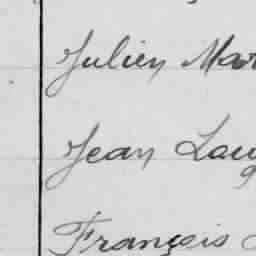 Julien Mar
Jean Lau
François